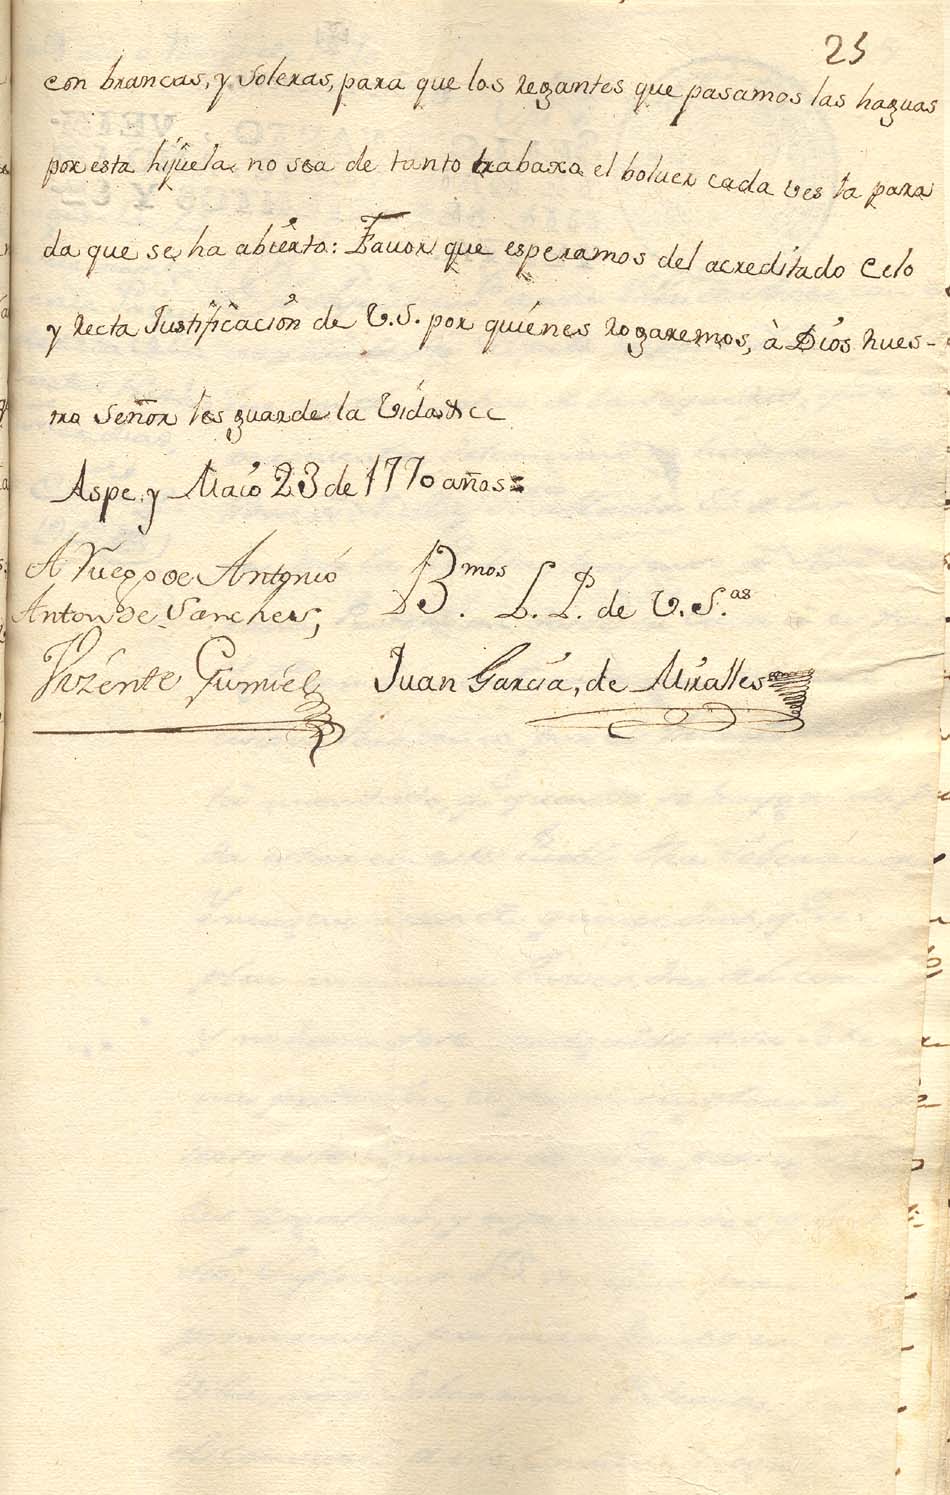 25
con brancas, y Soleras, para que los regantes que pasamos las haguas
por esta hijuela no sea de tanto trabaxo el boluer cada ves la para
da que se ha abierto: Fauor que esperamos del acreditado Celo
y recta Justificación de V.S. por quiénes rogaremos, à Dios nues-
tro Señor les guarde la Vida &cc
Aspe, y Maio 23 de 1770 años=
A Ruego de Antonio
Anton de Sanchers,
B.mos L. P. de V. S.as
Vizénte Gumiel
Juan Garcia, de Miralles